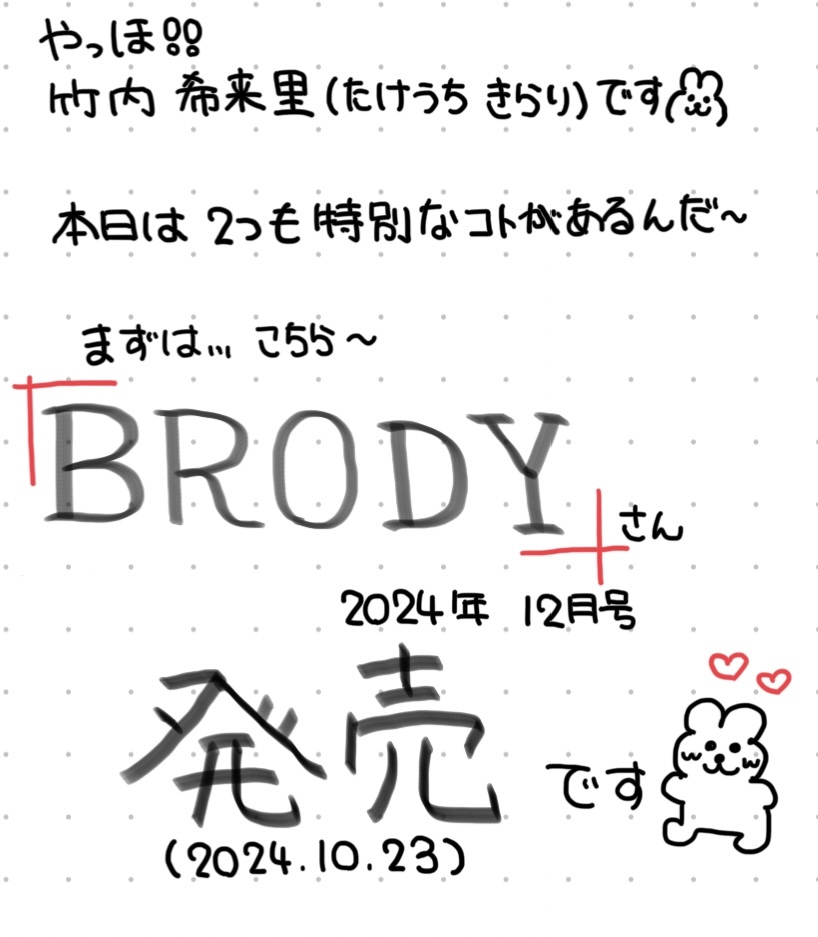 やっほ!!
竹内 希来里(たけうち きらり)です
本日は 2つも特別なコトがあるんだ〜
まずは... こちら〜
BRODY
さん
2024年 12月号
発売
です
(2024.10.23)